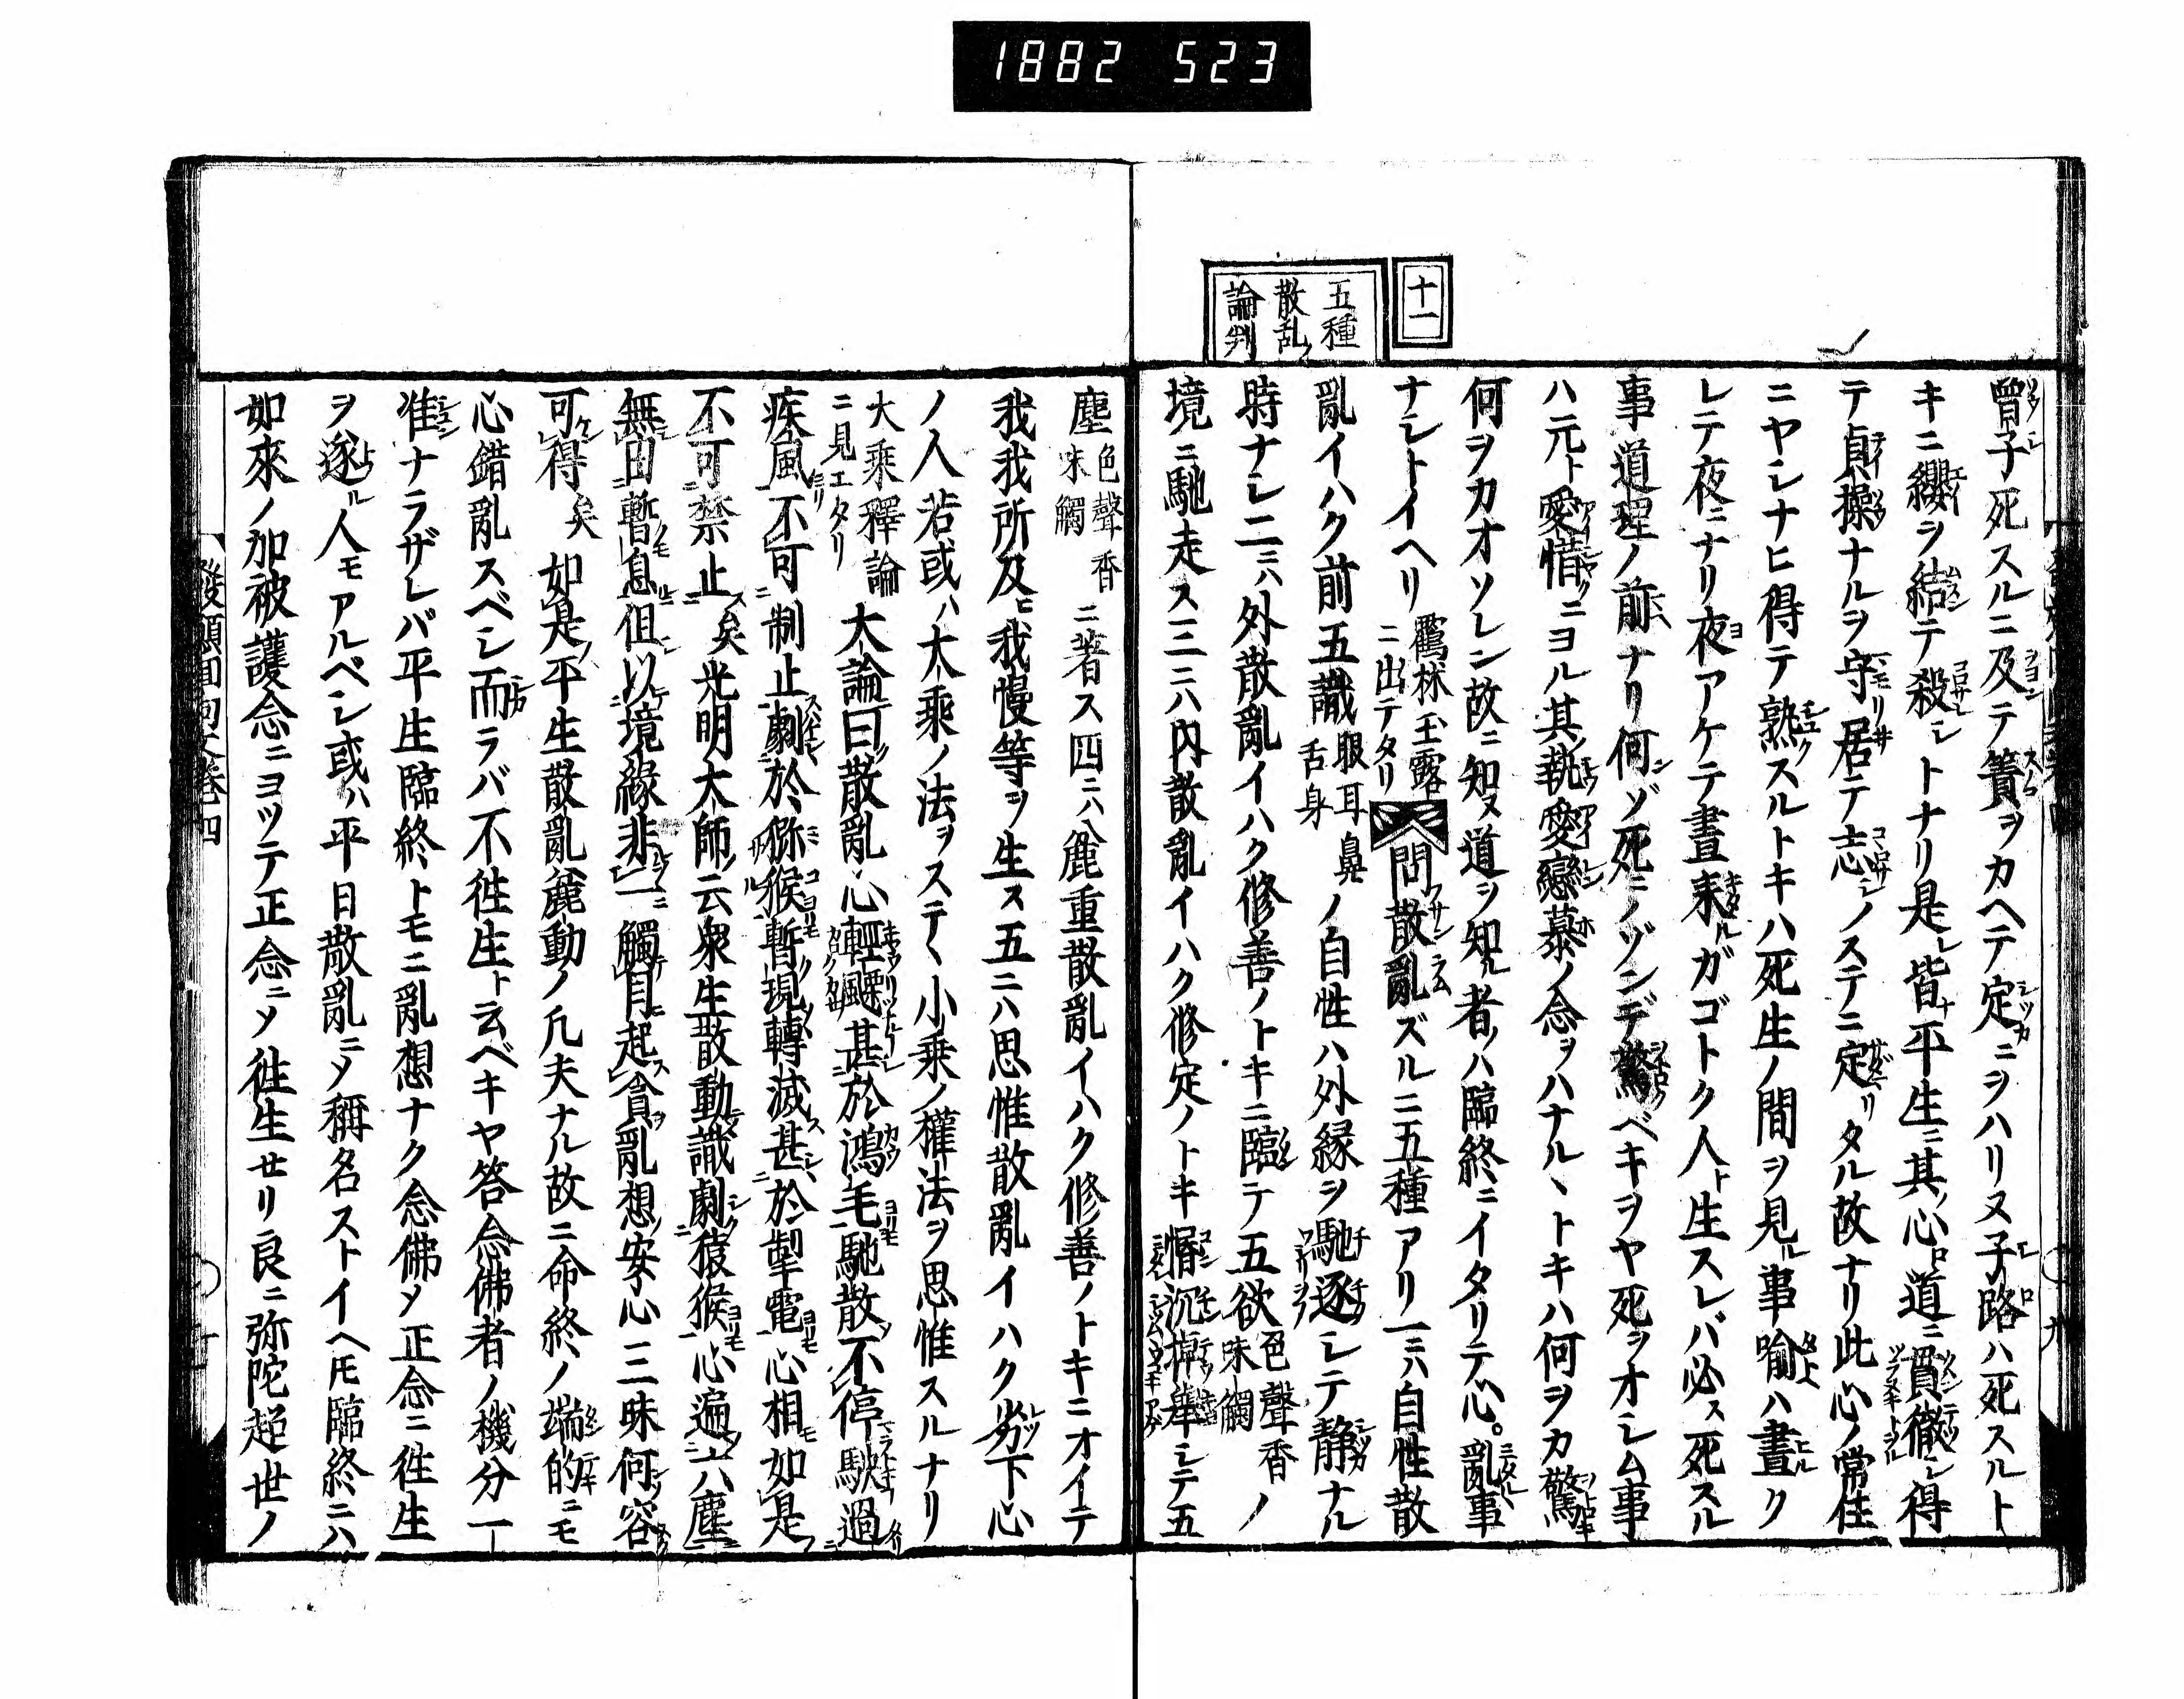 1882 523
十一
五種
散乱
論判
曾子死スルニ及テ簀ヲカヘテ定ニヲハリヌ子路ハ死スルト
キニ纓ヲ結テ殺レトナリ是レ皆ナ平生ニ其ノ心ロ道ニ貫徹シ得
テ貞操ナルヲ守居テ志ノステニ定リタル故ナリ此心ノ常住
ニヤシナヒ得テ熟スルトキハ死生ノ間ヲ見ル事喩ハ晝ク
レテ夜ニナリ夜アケテ晝来ルガゴトク人ト生スレバ必ス死スル
事道理ノ前ナリ何ゾ死ニノゾンデ驚ベキヲヤ死ヲオシム事
ハ元ト愛惜ニヨル其執愛戀慕ノ念ヲハナルヽトキハ何ヲカ驚
何ヲカオソレン故ニ知ヌ道ヲ知ル者ノハ臨終ニイタリテ心亂事
ナシトイヘリ鶴林玉露ニ出テタリ 問散亂ズルニ五種アリ一ニハ自性散
亂イハク前五識眼耳鼻舌身ノ自性ハ外縁ヲ馳逐シテ静ナル
時ナシ二ニハ外散亂イハク修善ノトキニ臨テ五欲色聲香味觸ノ
境ニ馳走ス三ニハ内散亂イハク修定ノトキ惛沉掉舉シテ五
塵色聲香味觸ニ著ス四ニハ麁重散亂イハク修善ノトキニオイテ
我我所及ヒ我慢等ヲ生ス五ニハ思惟散亂イハク劣下心
ノ人若或ハ大乘ノ法ヲステヽ小乗ノ權法ヲ思惟スルナリ
大乘釋論ニ見エタリ大論曰散亂心輕飄甚於鴻毛馳散不停駛過
疾風不可制止劇於獼猴暫現轉滅甚於掣電心相如是
不可禁止矣光明大師云衆生散動識劇猿猴心遍六塵
無由暫息但以境緣非一觸目起貪亂想安心三昧何容
可得矣如是平生散亂麁動ノ凡夫ナル故ニ命終ノ端的ニモ
心錯亂スベシ而ラバ不徃生ト云ベキヤ答念佛者ノ機分一
准ナラザレバ平生臨終トモニ亂想ナク念佛シテ正念ニ徃生
ヲ逐ル人モアルベシ或ハ平日散亂ニシテ稱名ストイヘトモ臨終ニハ
如來ノ加被護念ニヨツテ正念ニシテ徃生セリ良ニ弥陀超世ノ
發願回向文卷四